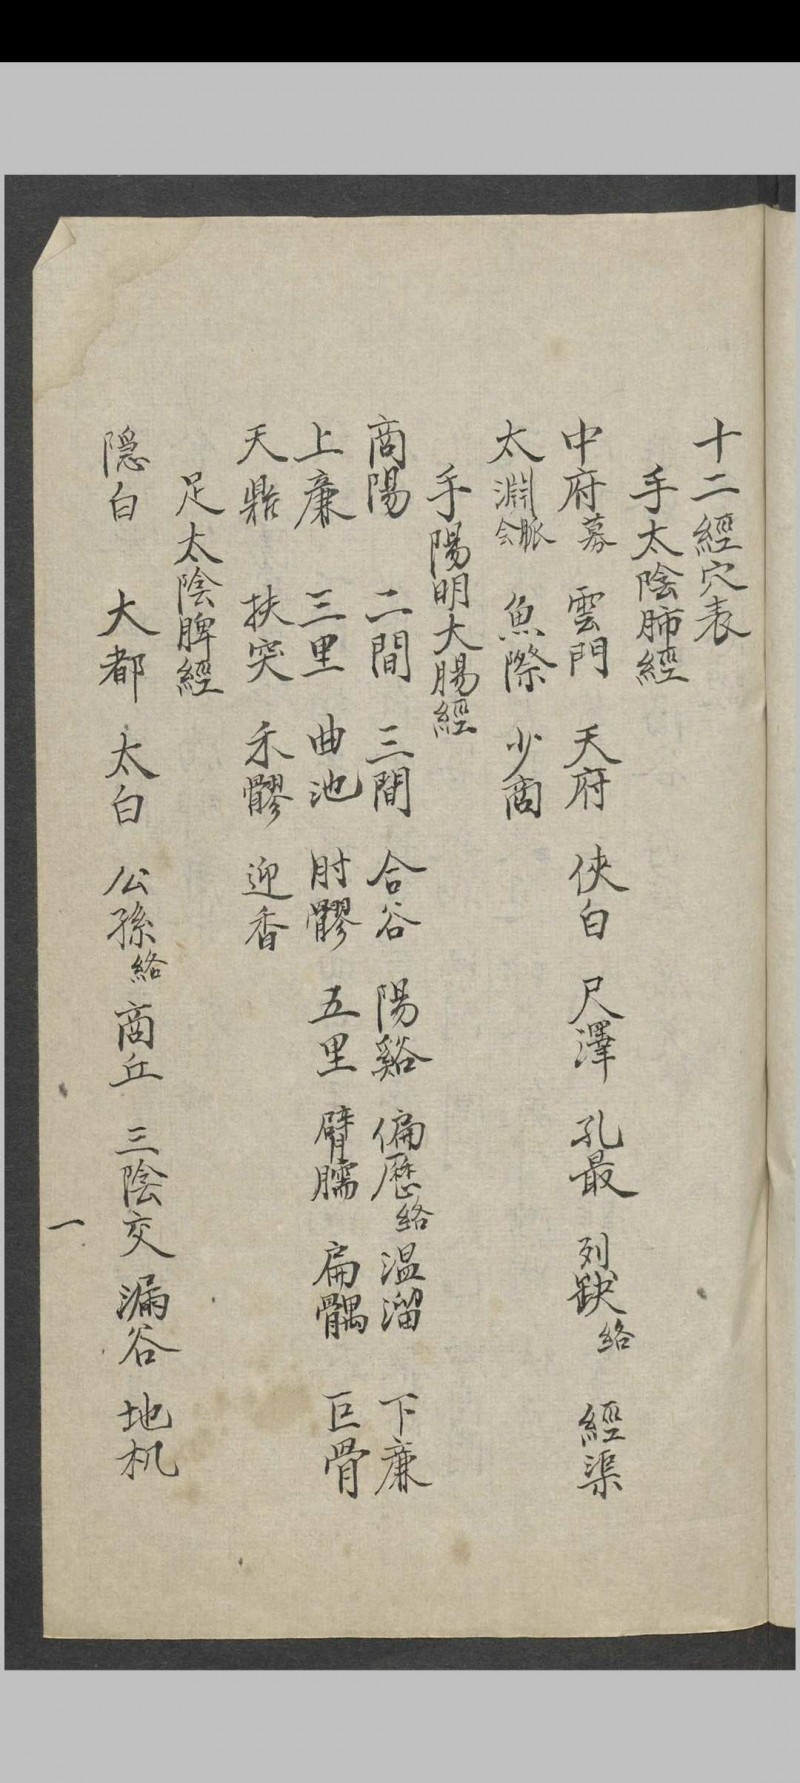 十二經穴表
手太陰肺經
中府募　雲門　天府　俠白　尺澤　孔最　列缺絡　經渠
太淵会脈　魚際　少商
手陽明大腸經
商陽　二間　三間　合谷　陽谿　偏歷絡　温溜　下廉
上廉　三里　曲池　肘髎　五里　臂臑　扁髃　巨骨
天鼎　扶突　禾髎　迎香
足太陰脾經
隠白　大都　太白　公孫絡　商丘　三陰交　漏谷　地机
一